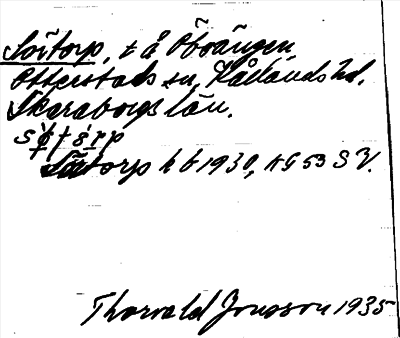 Söttorp, t å Öbrängen,
Otterstads sn, Kållands hd.
Skaraborgs län.
Söttorp h b 1930, KG 53 SV.
Thorvald Jonsson 1935